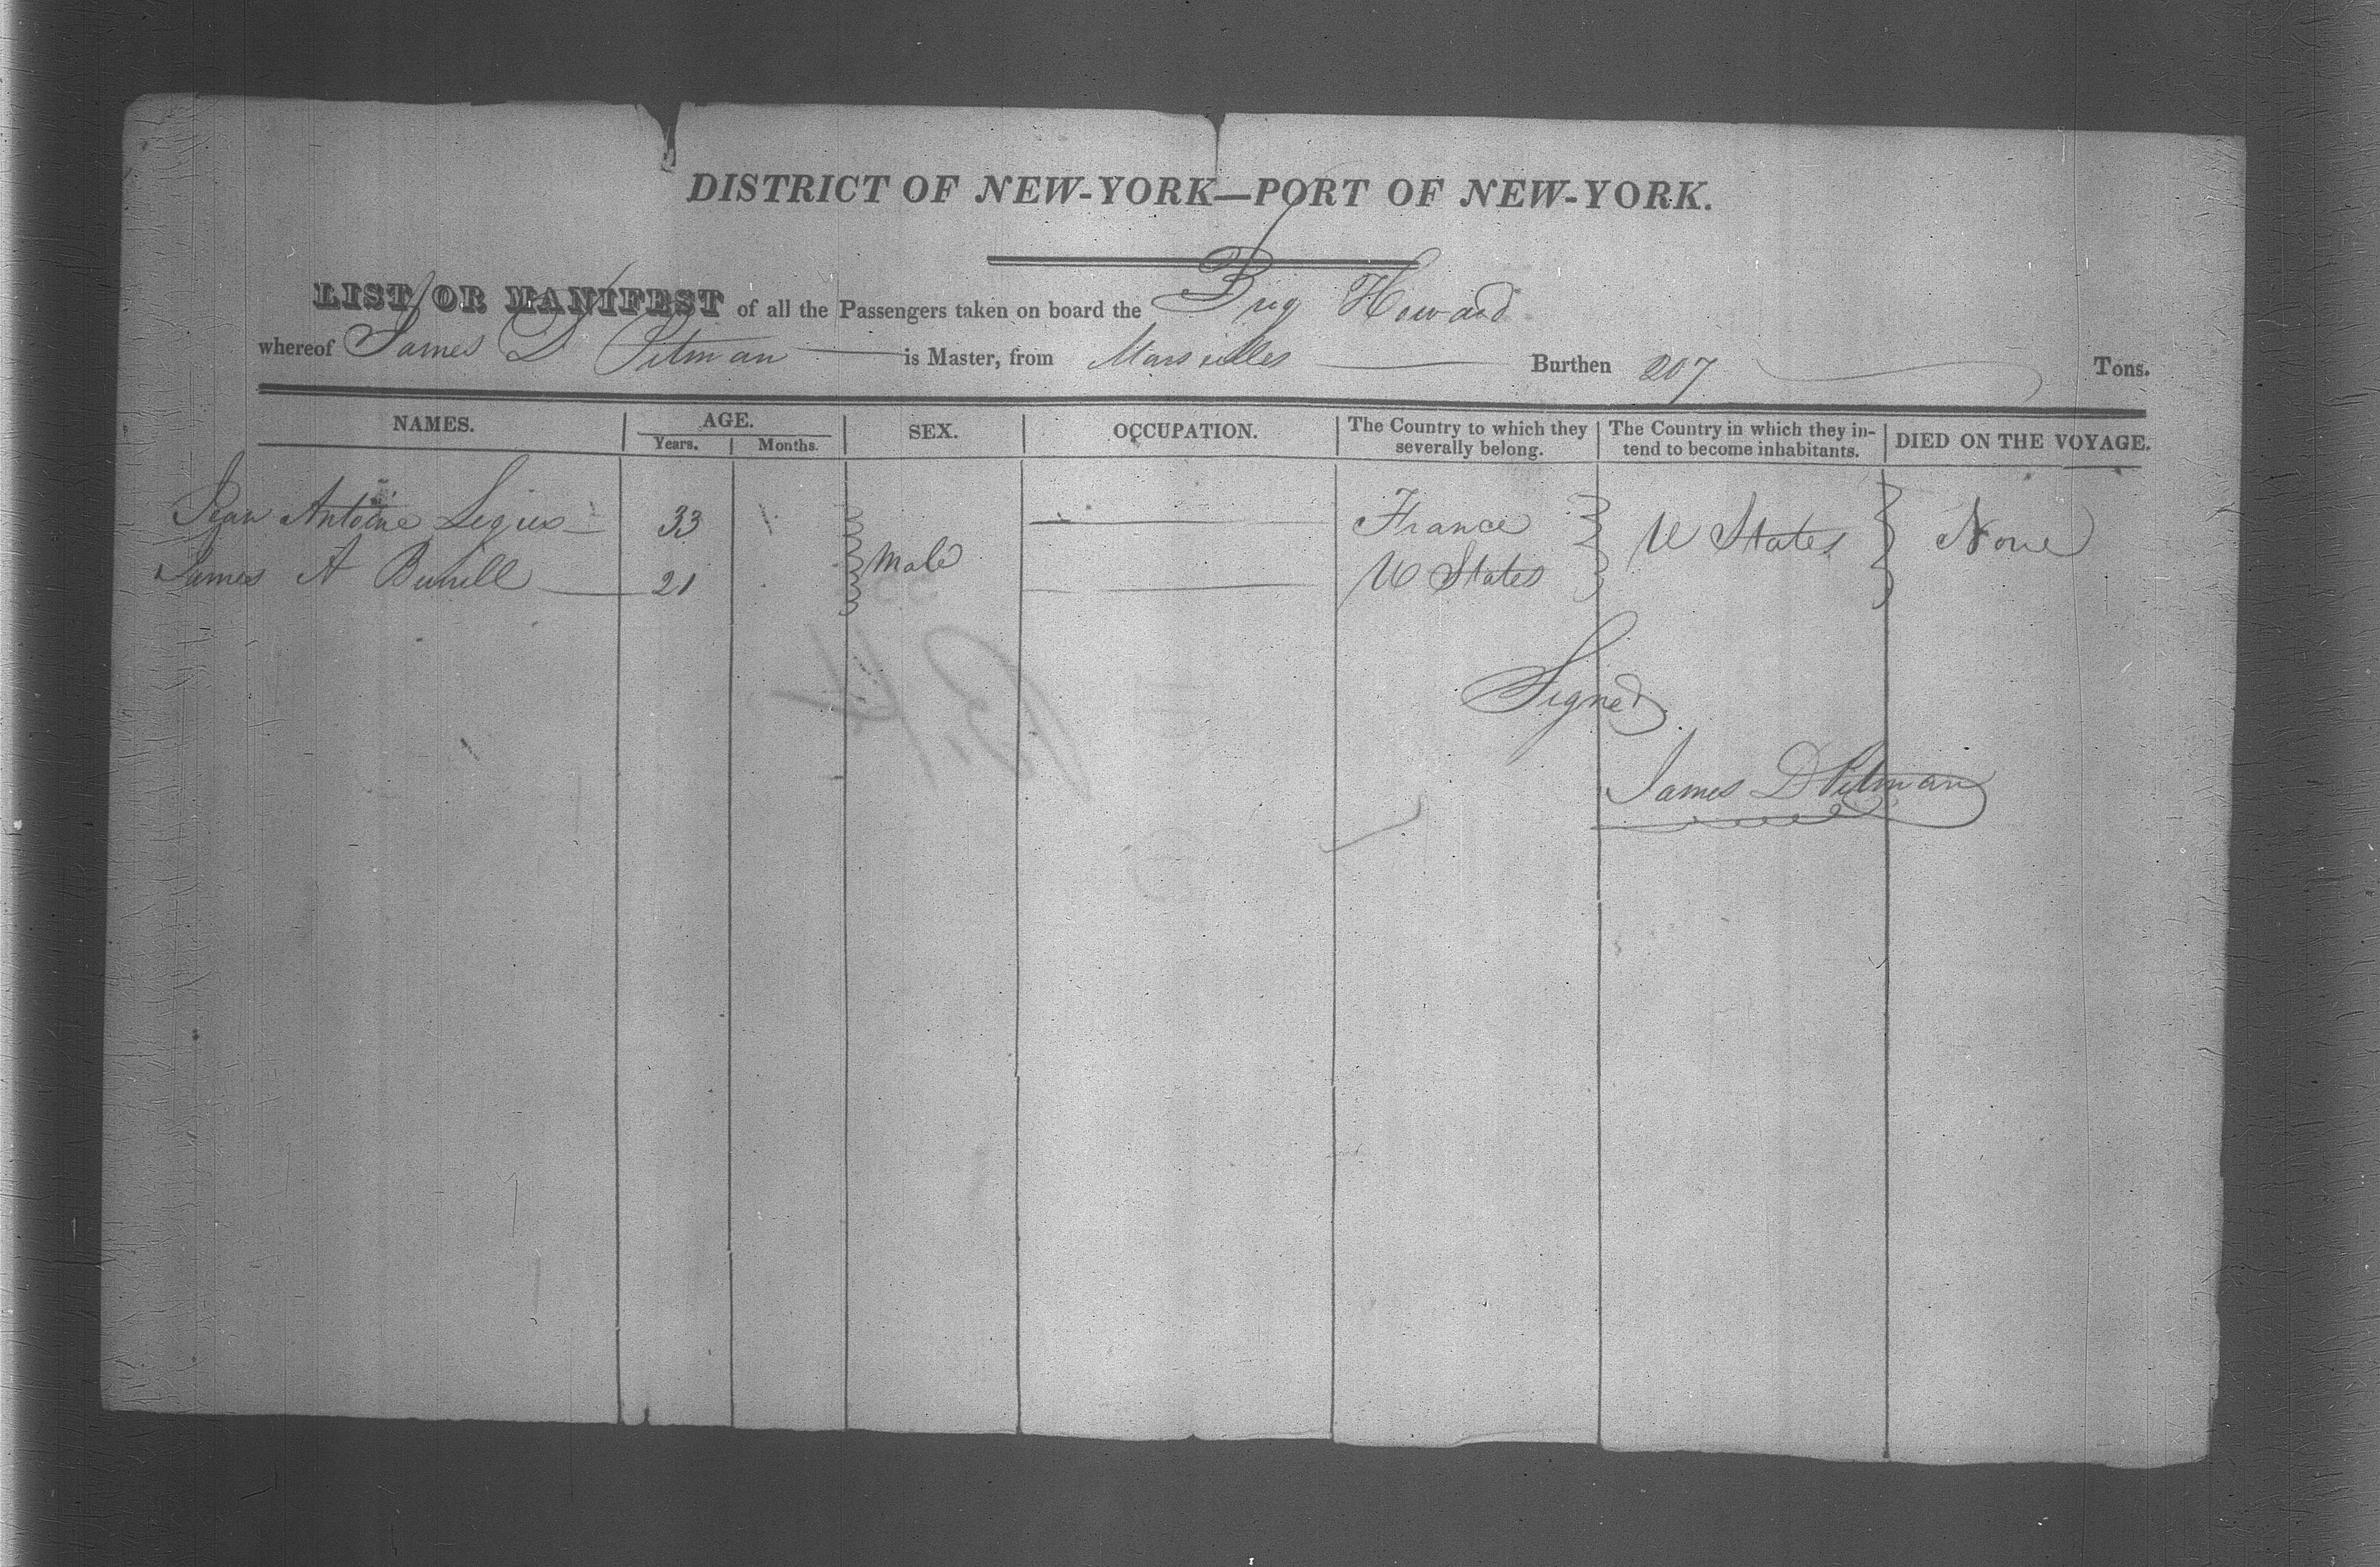 DISTRICT OF NEW-YORK—PORT OF NEW-YORK.
LIST OR MANIFEST of all the Passengers taken on board the Brig Howard
whereof James D Pitman is Master, from Marseilles Burthen 207 Tons.
NAMES. AGE. SEX. OCCUPATION. The Country to which they severally belong. The Country in which they intend to become inhabitants. DIED ON THE VOYAGE.
Years. Months.
Jean Antoine 33 France
Male U States None
James A Burrill 21 U States
Signed
James D Pitman